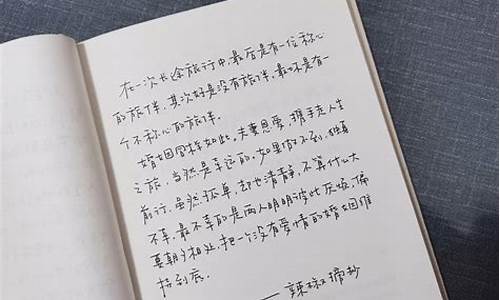 在一次长途旅行中，最好是有一位称心
的旅伴，其次好是没有旅伴，最坏是有一
个不称心的旅伴。
婚姻同样如此。夫妻恩爱，携手走人生
之旅，当然是幸运的。如果做不到，独自
前行，虽然孤单，却也清静，不算什么大
不幸。最不幸的是两人明明彼此厌烦，偏
要朝夕相处，把一个没有爱情的婚姻维
持到底。
——辣椒摘抄